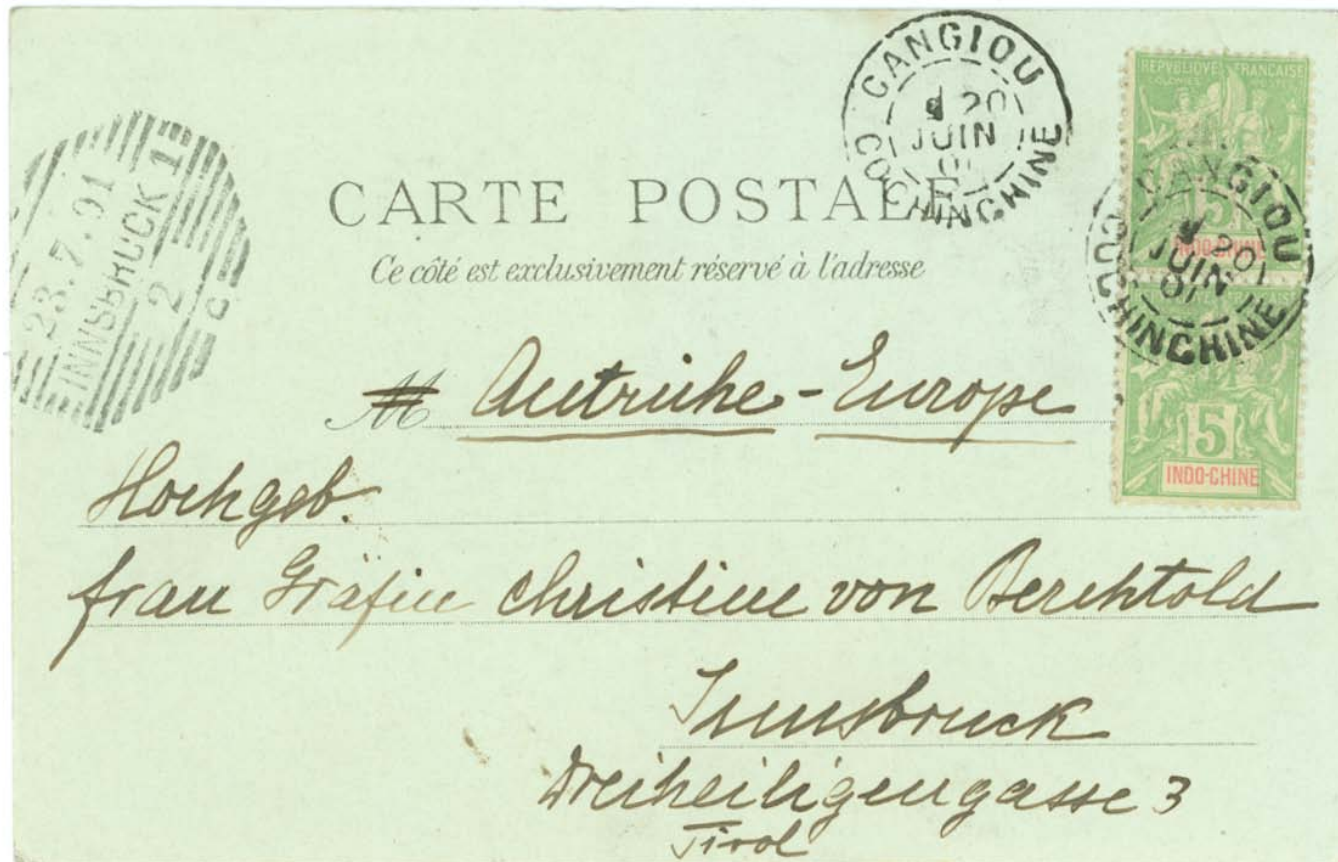 CANGIOU
20
JUIN
01
COCHINCHINE
REPUBLIQUE FRANÇAISE
COLONIES
5
INDO-CHINE
CANGIOU
20
JUIN
01
COCHINCHINE
5
INDO-CHINE
23.7.01
INNSBRUCK 1
2
C
CARTE POSTALE
Ce côté est exclusivement réservé à l'adresse
M Autriche - Europe
Hochgeb.
Frau Gräfin Christine von Berchtold
Innsbruck
Dreiheiligengasse 3
Tirol